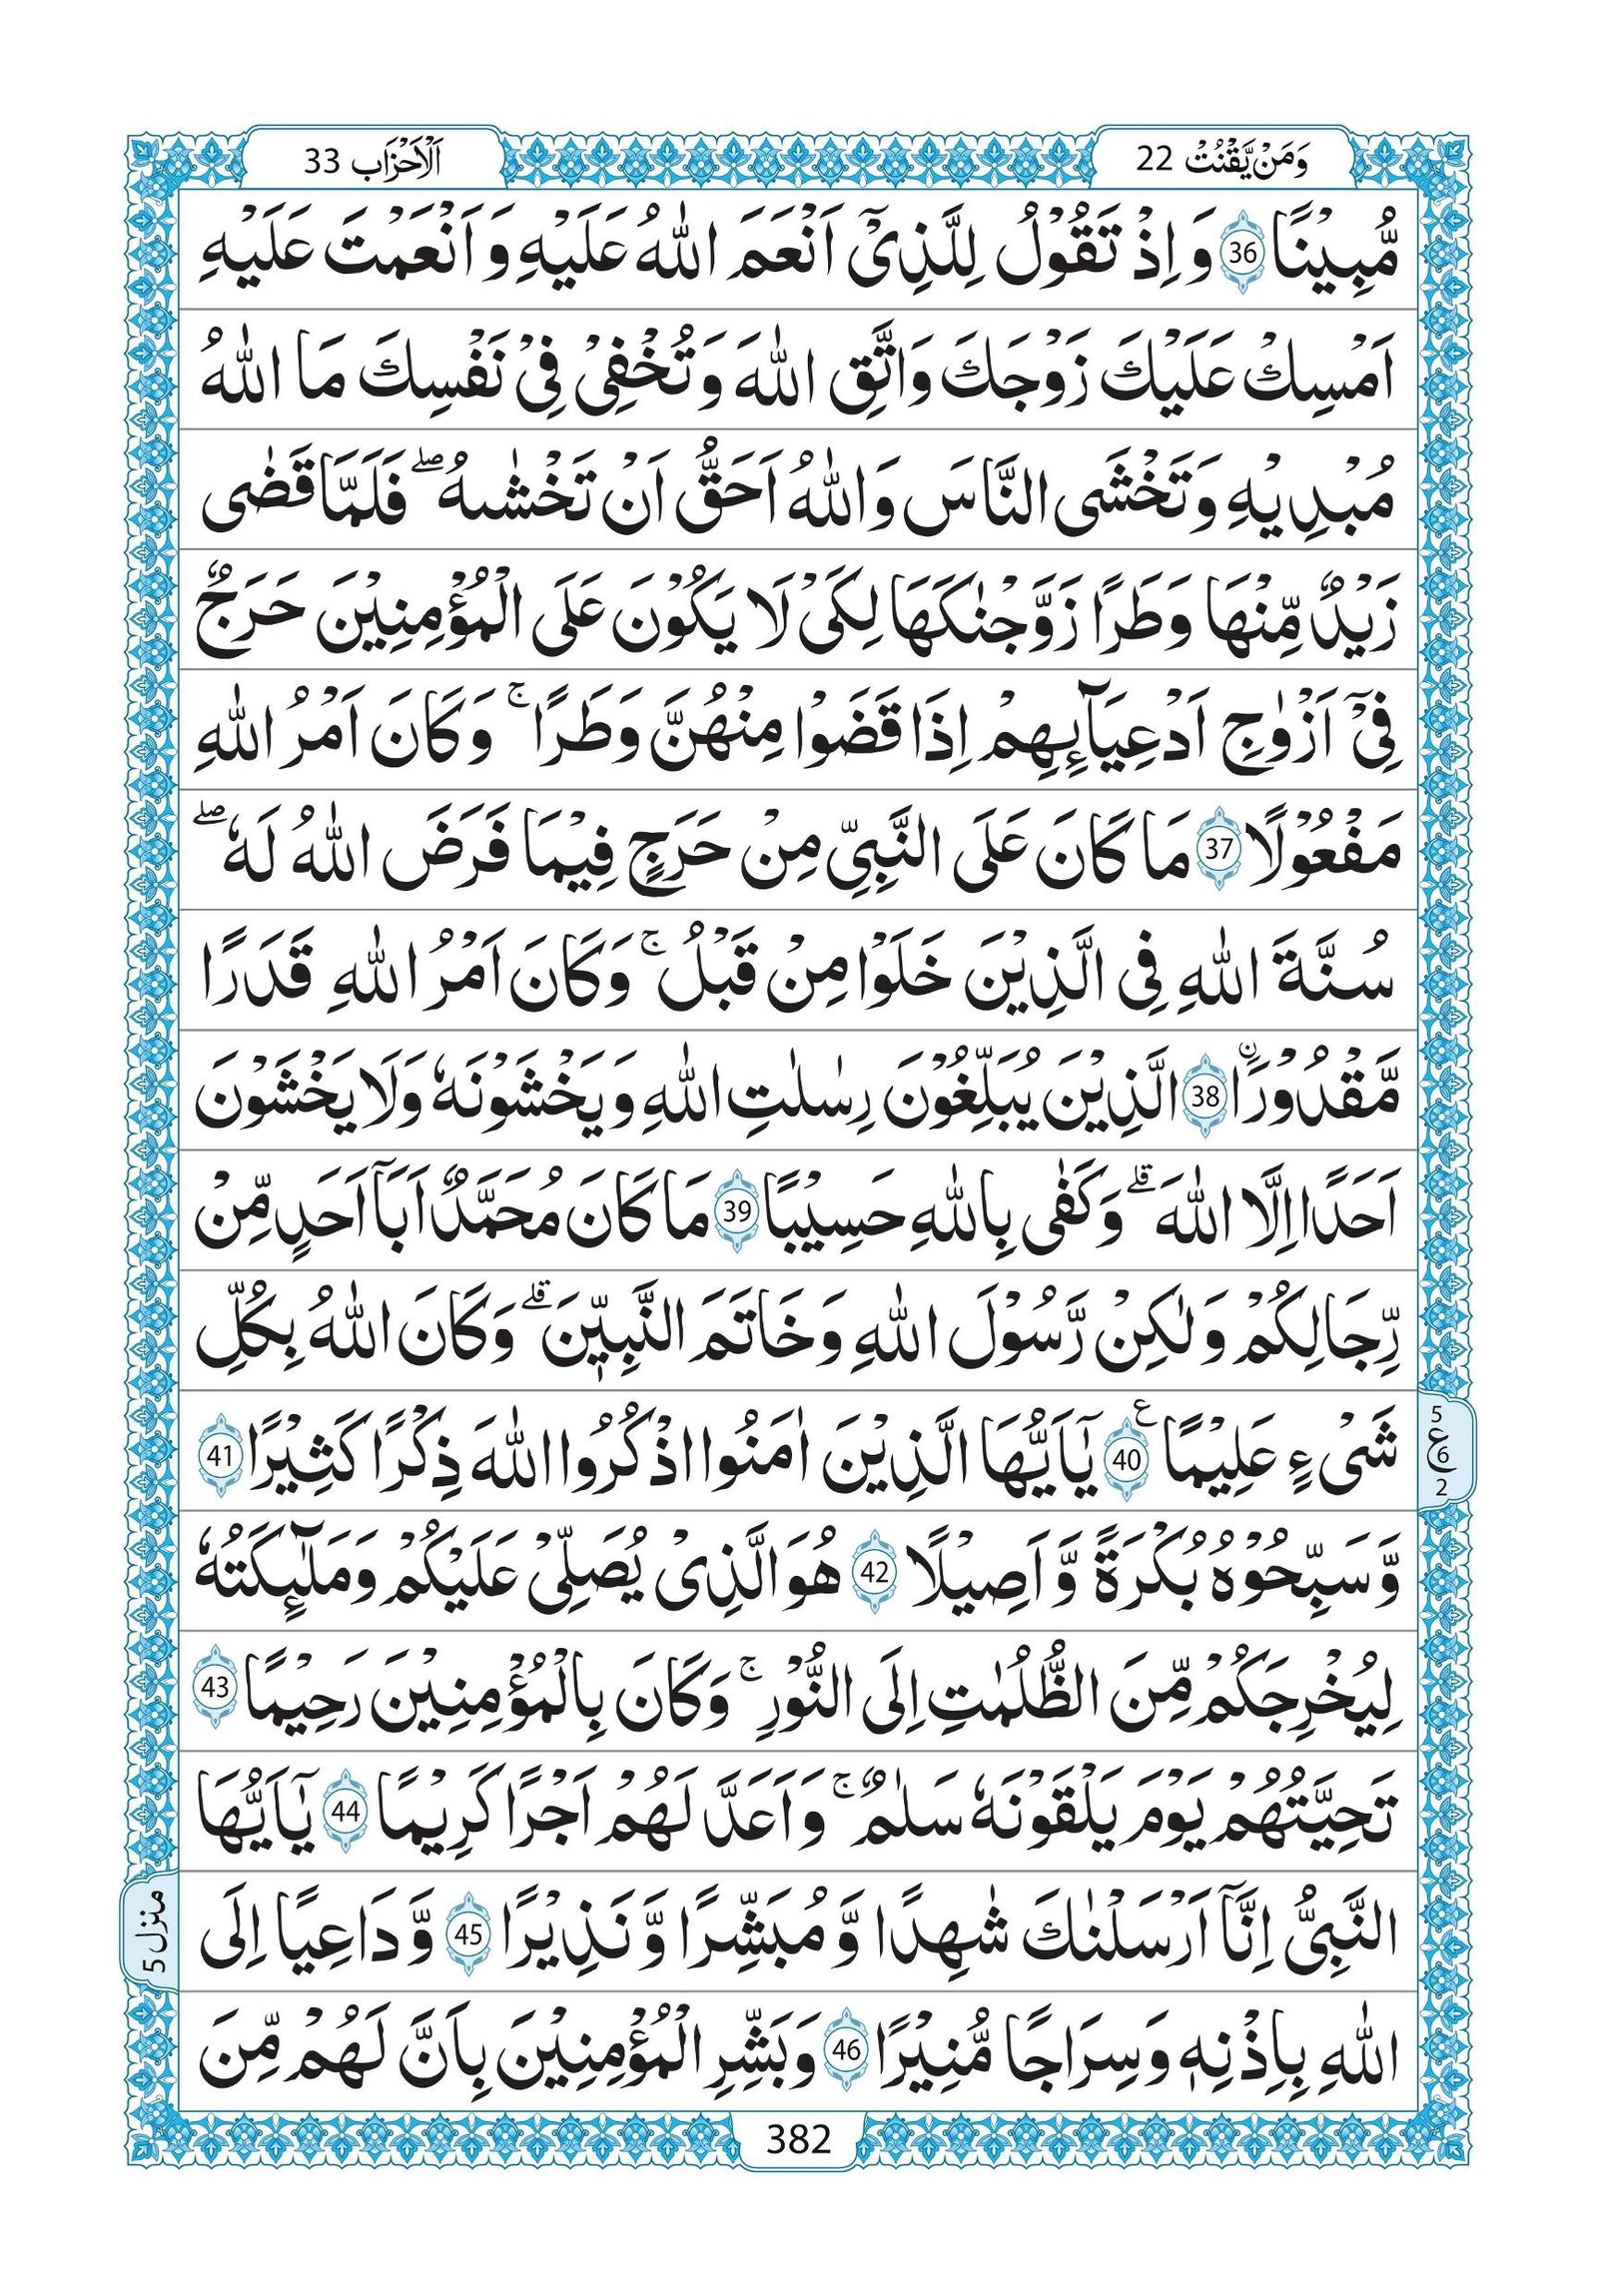 وَمَنْ يَّقْنُتْ 22
اَلْاَحْزَاب 33
مُّبِيْنًا 36 وَ اِذْ تَقُوْلُ لِلَّذِيْۤ اَنْعَمَ اللّٰهُ عَلَيْهِ وَ اَنْعَمْتَ عَلَيْهِ
اَمْسِكْ عَلَيْكَ زَوْجَكَ وَاتَّقِ اللّٰهَ وَ تُخْفِيْ فِيْ نَفْسِكَ مَا اللّٰهُ
مُبْدِيْهِ وَ تَخْشَى النَّاسَ وَاللّٰهُ اَحَقُّ اَنْ تَخْشٰىهُ ۖ فَلَمَّا قَضٰى
زَيْدٌ مِّنْهَا وَطَرًا زَوَّجْنٰكَهَا لِكَىْ لَا يَكُوْنَ عَلَى الْمُؤْمِنِيْنَ حَرَجٌ
فِىْۤ اَزْوٰجِ اَدْعِيَآىِٕهِمْ اِذَا قَضَوْا مِنْهُنَّ وَطَرًا ۚ وَكَانَ اَمْرُ اللّٰهِ
مَفْعُوْلًا 37 مَا كَانَ عَلَى النَّبِىِّ مِنْ حَرَجٍ فِيْمَا فَرَضَ اللّٰهُ لَهٗ ۖ
سُنَّةَ اللّٰهِ فِى الَّذِيْنَ خَلَوْا مِنْ قَبْلُ ۚ وَكَانَ اَمْرُ اللّٰهِ قَدَرًا
مَّقْدُوْرًا 38 الَّذِيْنَ يُبَلِّغُوْنَ رِسٰلٰتِ اللّٰهِ وَ يَخْشَوْنَهٗ وَلَا يَخْشَوْنَ
اَحَدًا اِلَّا اللّٰهَ ۗ وَكَفٰى بِاللّٰهِ حَسِيْبًا 39 مَا كَانَ مُحَمَّدٌ اَبَاۤ اَحَدٍ مِّنْ
رِّجَالِكُمْ وَلٰكِنْ رَّسُوْلَ اللّٰهِ وَخَاتَمَ النَّبِيّٖنَ ۗ وَكَانَ اللّٰهُ بِكُلِّ
شَىْءٍ عَلِيْمًا 40 ع يٰۤاَيُّهَا الَّذِيْنَ اٰمَنُوا اذْكُرُوا اللّٰهَ ذِكْرًا كَثِيْرًا 41
5 ع 6 2
وَّسَبِّحُوْهُ بُكْرَةً وَّ اَصِيْلًا 42 هُوَ الَّذِىْ يُصَلِّىْ عَلَيْكُمْ وَمَلٰٓىِٕكَتُهٗ
لِيُخْرِجَكُمْ مِّنَ الظُّلُمٰتِ اِلَى النُّوْرِ ۚ وَكَانَ بِالْمُؤْمِنِيْنَ رَحِيْمًا 43
تَحِيَّتُهُمْ يَوْمَ يَلْقَوْنَهٗ سَلٰمٌ ۚ وَاَعَدَّ لَهُمْ اَجْرًا كَرِيْمًا 44 يٰۤاَيُّهَا
النَّبِىُّ اِنَّاۤ اَرْسَلْنٰكَ شٰهِدًا وَّ مُبَشِّرًا وَّ نَذِيْرًا 45 وَّ دَاعِيًا اِلَى
منزل 5
اللّٰهِ بِاِذْنِهٖ وَسِرَاجًا مُّنِيْرًا 46 وَبَشِّرِ الْمُؤْمِنِيْنَ بِاَنَّ لَهُمْ مِّنَ
382